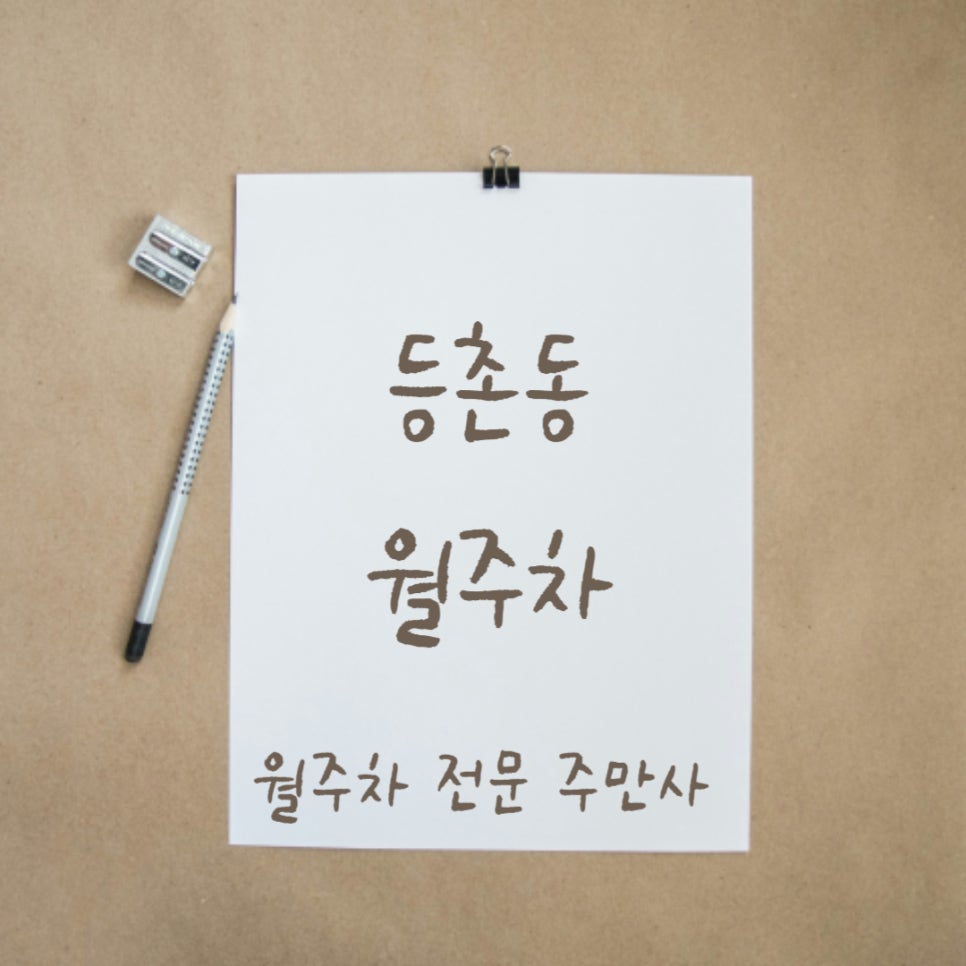 등촌동
월주차
월주차 전문 주만사